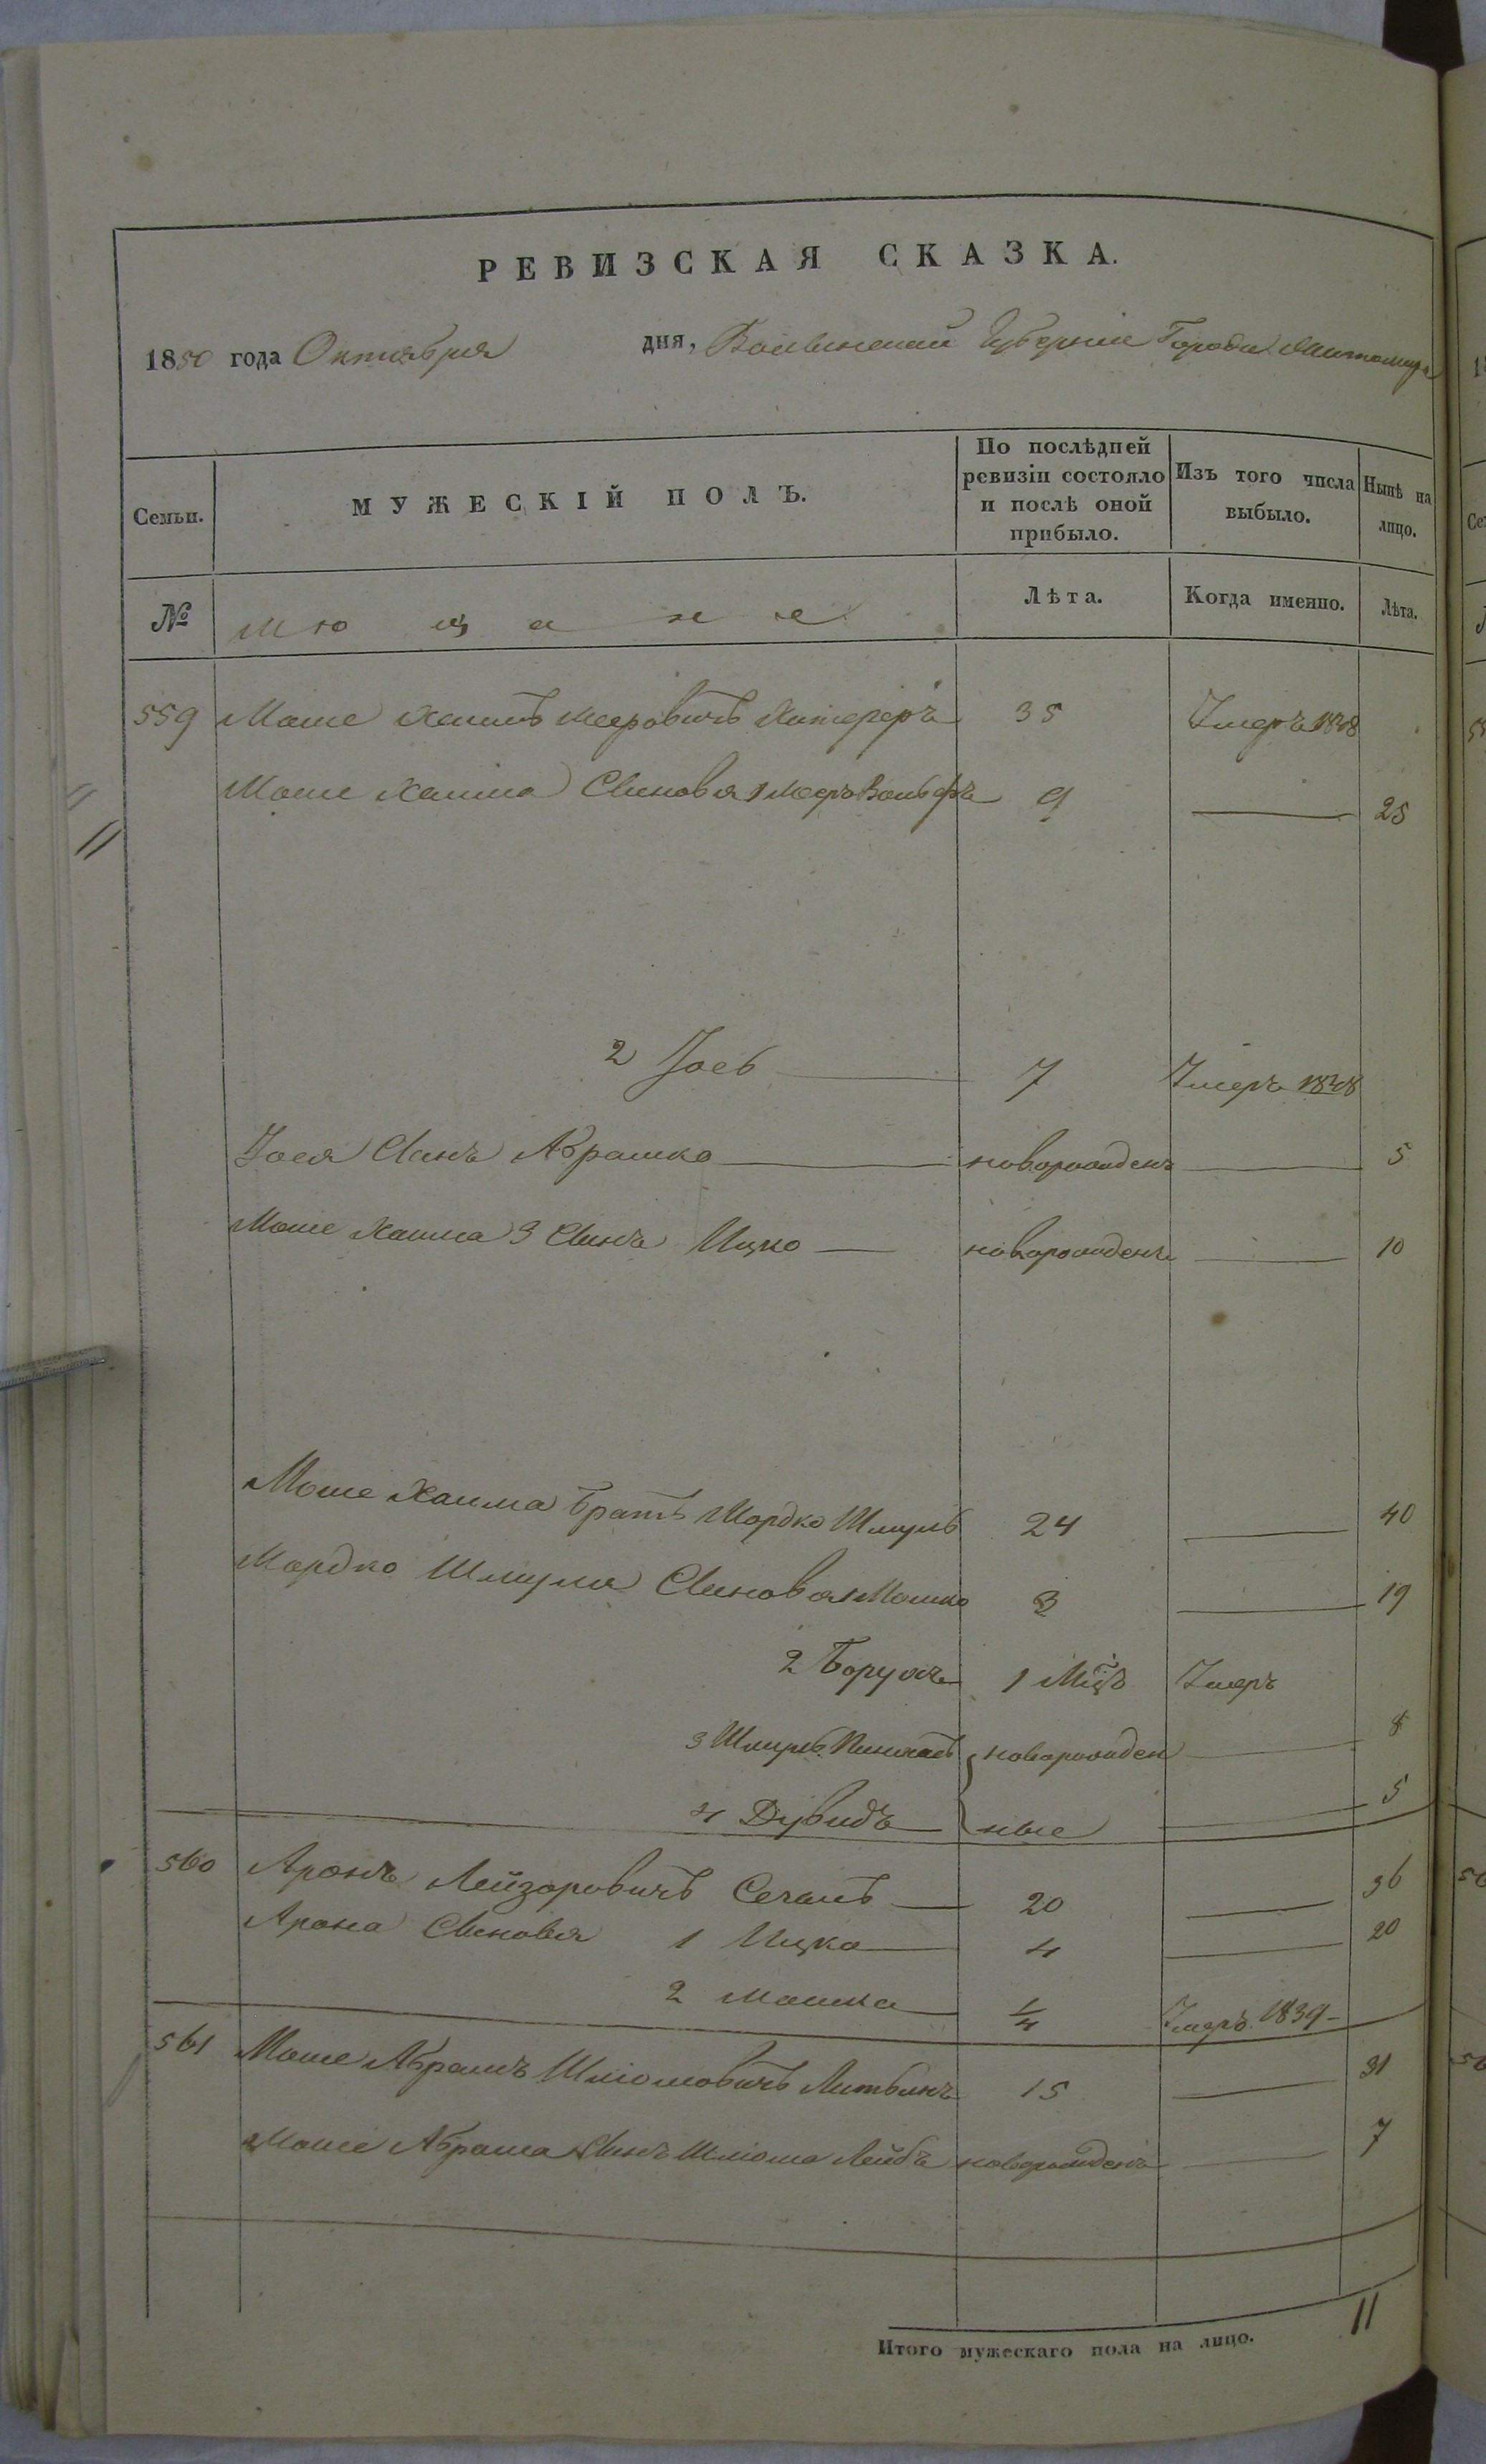 РЕВИЗСКАЯ СКАЗКА.
1850 года Октября дня, Волынской Губерніи Города Житомира
Семьи. МУЖЕСКІЙ ПОЛЪ. По послѣдней ревизіи состояло и послѣ оной прибыло. Изъ того числа выбыло. Нынѣ на лицо.
№ Мѣщане Лѣта. Когда именно. Лѣта.
559 Моше Хаимъ Мееровичъ 35 Умеръ 1848
Моше Хаима Сыновья 1 Меръ Вольфъ 9 — 25
11
2 Іось — 7 Умеръ 1848
Іося Сынъ Абрашко — новорожденъ — 5
Моше Хаима 3 Сынъ Ицко — новорожденъ — 10
Моше Хаима братъ Мордко Шмуль 24 — 40
Мордко Шмуля Сыновья 1 Мошко 3 — 19
2 Борухъ 1 Мцъ Умеръ
3 Шмуль Пинхасъ новорожден — 8
4 Дувидъ — ные — 5
560 Аронъ Лейзоровичъ — 20 — 36
Арона Сыновья 1 Ицко — 4 — 20
2 Мошко — 1/4 Умеръ 1839 –
561 Моше Абрамъ Шліомовичъ Литвинъ 15 — 31
Моше Абрама Сынъ Шліома Лейбъ новорожденъ — 7
Итого мужескаго пола на лицо. 11